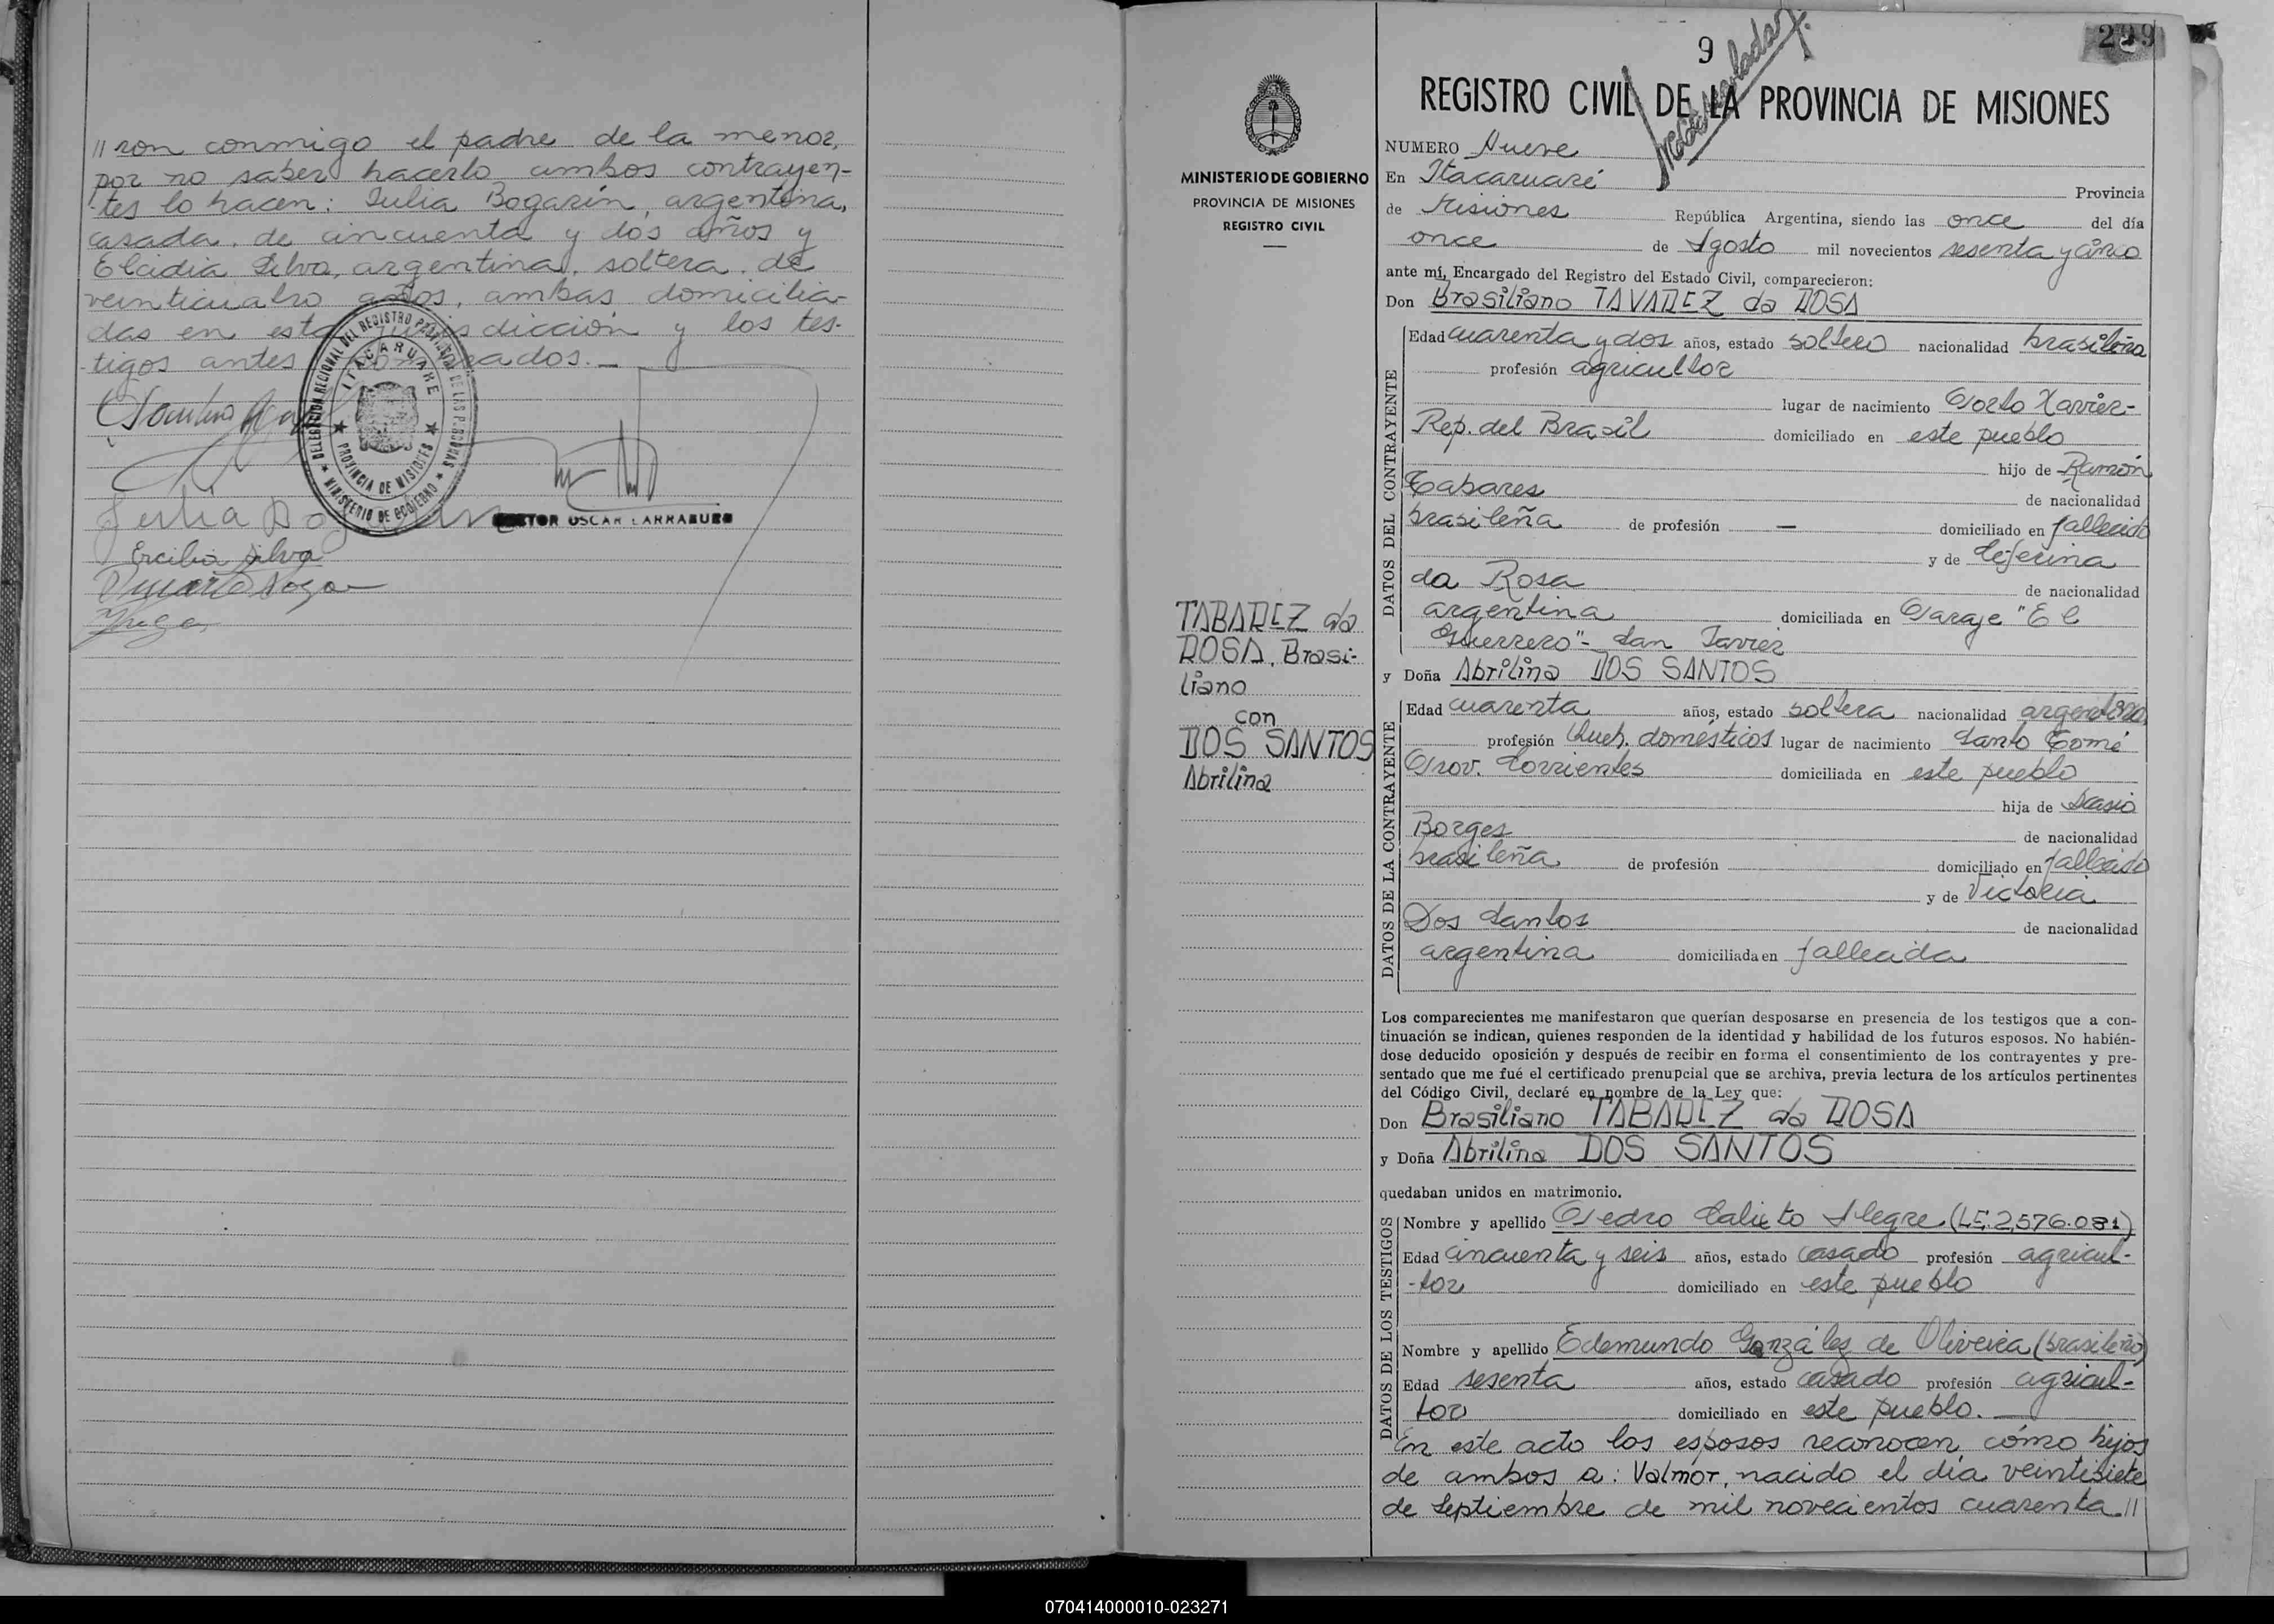 // ron conmigo el padre de la menor,
por no saber hacerlo ambos contrayen-
tes lo hacen: Julia Bogarín, argentina,
casada, de cincuenta y dos años y
Elcidia Silva, argentina, soltera, de
veinticuatro años, ambas domicilia-
das en esta jurisdicción y los tes-
tigos antes nombrados.—
DELEGACION REGIONAL DEL REGISTRO PROVINCIAL DE LAS PERSONAS
ITACARUARE
PROVINCIA DE MISIONES
MINISTERIO DE GOBIERNO
OSCAR LARRABURE
Ercilia Silva
9
299
REGISTRO CIVIL DE LA PROVINCIA DE MISIONES
MINISTERIO DE GOBIERNO
PROVINCIA DE MISIONES
REGISTRO CIVIL
TABAREZ da
ROSA, Brasi-
liano
con
DOS SANTOS
Abrilina
NUMERO Nueve
En Itacaruaré Provincia
de Misiones República Argentina, siendo las once del día
once de Agosto mil novecientos sesenta y cinco
ante mí, Encargado del Registro del Estado Civil, comparecieron:
Don Brasiliano TAVAREZ da ROSA
DATOS DEL CONTRAYENTE
Edad cuarenta y dos años, estado soltero nacionalidad brasileña
profesión agricultor
lugar de nacimiento Porto Xavier-
Rep. del Brasil domiciliado en este pueblo
hijo de Ramón
Tabares de nacionalidad
brasileña de profesión — domiciliado en fallecido
y de Ceferina
da Rosa de nacionalidad
argentina domiciliada en Paraje "El
Guerrero"- San Javier
y Doña Abrilina DOS SANTOS
DATOS DE LA CONTRAYENTE
Edad cuarenta años, estado soltera nacionalidad argentina
profesión Queh. domésticos lugar de nacimiento Santo Tomé
Prov. Corrientes domiciliada en este pueblo
hija de Acasio
Borges de nacionalidad
brasileña de profesión domiciliado en fallecido
y de Victoria
Dos Santos de nacionalidad
argentina domiciliada en fallecida
Los comparecientes me manifestaron que querían desposarse en presencia de los testigos que a con-
tinuación se indican, quienes responden de la identidad y habilidad de los futuros esposos. No habién-
dose deducido oposición y después de recibir en forma el consentimiento de los contrayentes y pre-
sentado que me fué el certificado prenupcial que se archiva, previa lectura de los artículos pertinentes
del Código Civil, declaré en nombre de la Ley que:
Don Brasiliano TABAREZ da ROSA
y Doña Abrilina DOS SANTOS
quedaban unidos en matrimonio.
DATOS DE LOS TESTIGOS
Nombre y apellido Pedro Calixto Alegre (LE. 2,576.081)
Edad cincuenta y seis años, estado casado profesión agricul-
-tor domiciliado en este pueblo
Nombre y apellido Edemundo Gonzáles de Oliveira (brasileño)
Edad sesenta años, estado casado profesión agricul-
tor domiciliado en este pueblo.—
En este acto los esposos reconocen cómo hijos
de ambos a: Valmor, nacido el día veintisiete
de Septiembre de mil novecientos cuarenta //
070414000010-023271